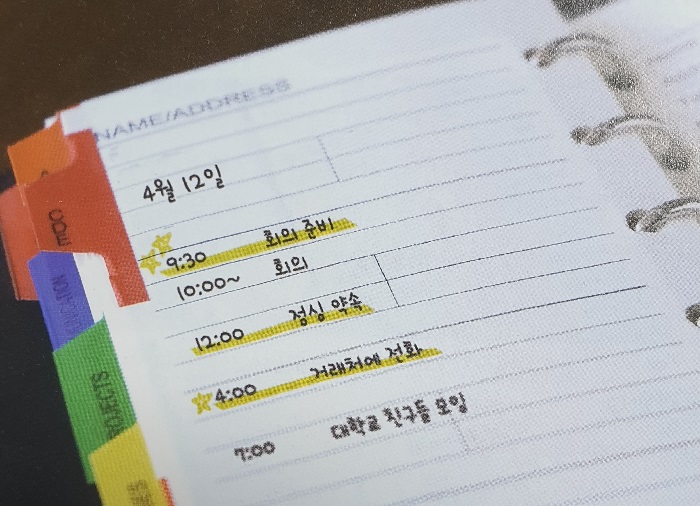 NAME/ADDRESS
4월 12일
9:30 회의 준비
10:00~ 회의
12:00 점심 약속
4:00 거래처에 전화
7:00 대학교 친구들 모임